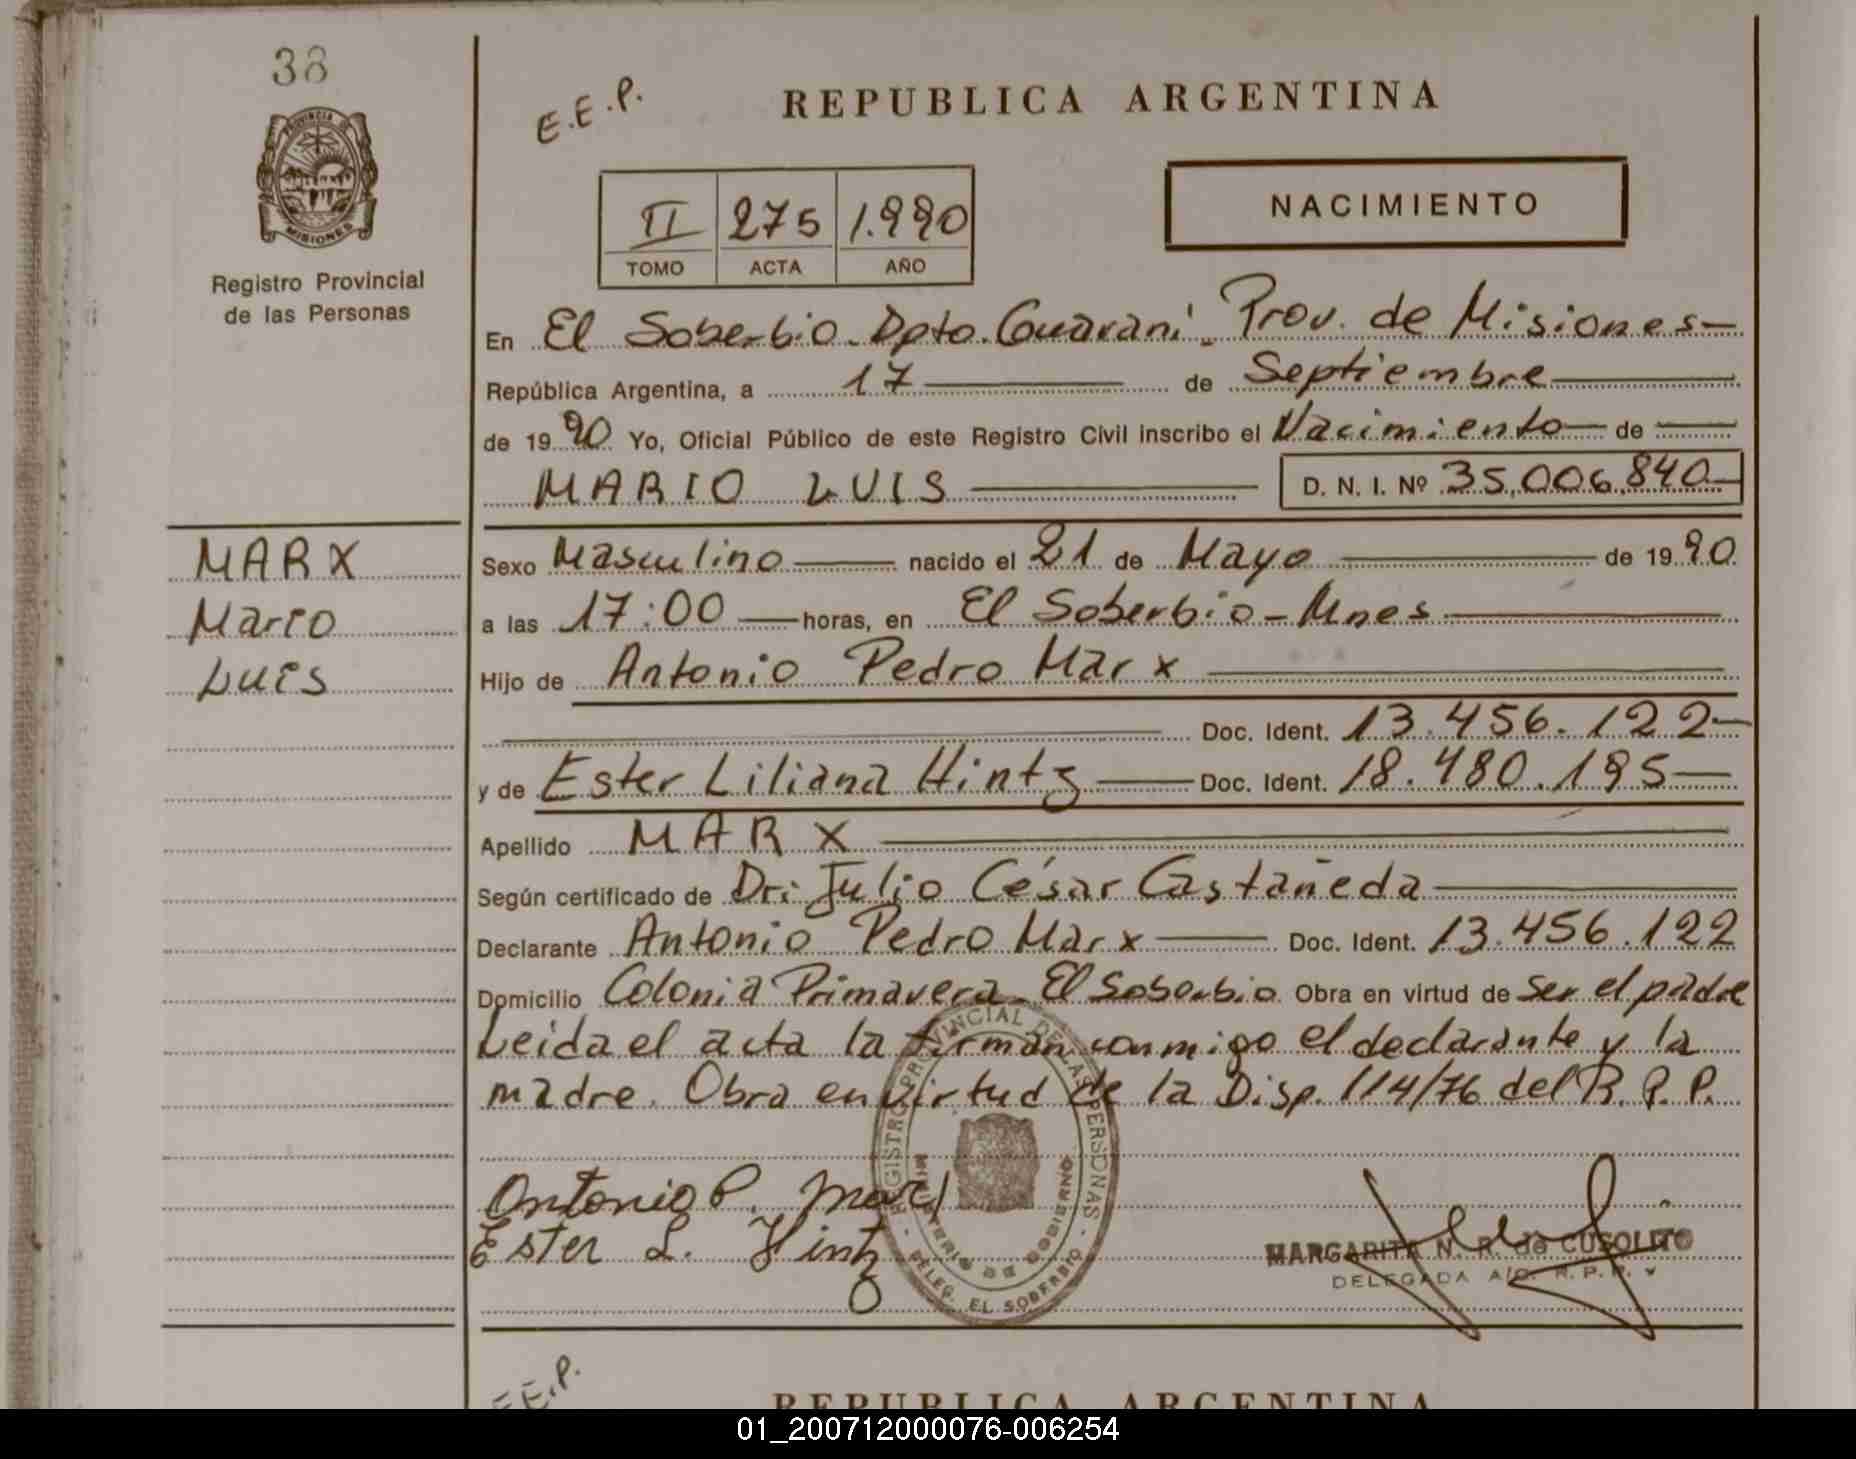 38
PROVINCIA DE
MISIONES
Registro Provincial
de las Personas
E.E.P.
REPUBLICA ARGENTINA
II 275 1.990
TOMO ACTA AÑO
NACIMIENTO
En El Soberbio - Dpto. Guaraní - Prov. de Misiones -
República Argentina, a 17 de Septiembre
de 1990 Yo, Oficial Público de este Registro Civil inscribo el Nacimiento de
MARIO LUIS D. N. I. Nº 35.006.840
MARX
Mario
Luis
Sexo Masculino nacido el 21 de Mayo de 1990
a las 17:00 horas, en El Soberbio - Mnes
Hijo de Antonio Pedro Marx
Doc. Ident. 13.456.122
y de Ester Liliana Hintz Doc. Ident. 18.480.195
Apellido MARX
Según certificado de Dr: Julio César Castañeda
Declarante Antonio Pedro Marx Doc. Ident. 13.456.122
Domicilio Colonia Primavera - El Soberbio Obra en virtud de ser el padre
Leida el acta la firman conmigo el declarante y la
madre. Obra en virtud de la Disp. 114/76 del R. P. P.
REGISTRO PROVINCIAL DE LAS PERSONAS
MINISTERIO DE GOBIERNO
DELEG. EL SOBERBIO
Antonio P. Marx
Ester L. Hintz
MARGARITA N. R. de CUSOLITO
DELEGADA A/C. R. P. P.
E.E.P.
REPUBLICA ARGENTINA
01_200712000076-006254